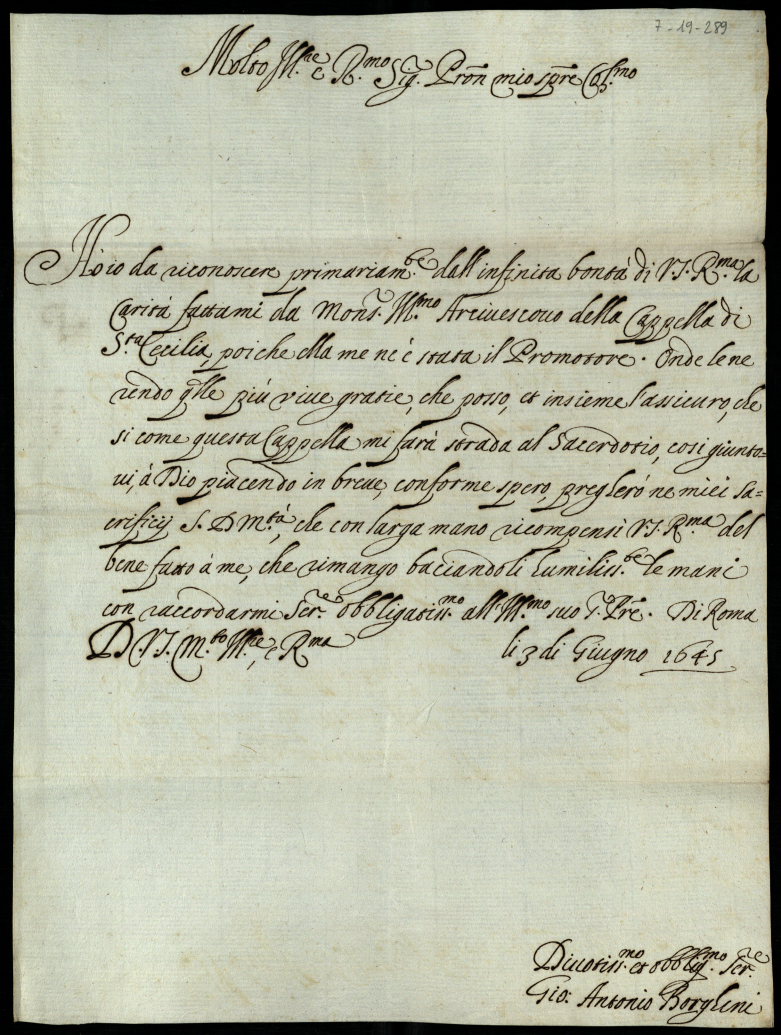 7-19-289
Molto Ill.re e R.mo Sig.r Pron mio sp̃re Col.mo
Hò io da riconoscere primariam.te dall'infinita bontà di V.S. R.ma la
Carità fattami da Mons.r Ill.mo Arcivescovo della Cappella di
S.ta Cecilia, poiche ella me ne è stata il Promotore. Onde le ne
rendo q̃lle più vive gratie, che posso, et insieme l'assicuro, che
si come questa Cappella mi farà strada al Sacerdotio, cosi giunto-
vi, à Dio piacendo in breve, conforme spero, pregherò ne miei Sa=
crificij S. D. M.tà, che con larga mano ricompensi V.S. R.ma del
bene fatto à me, che rimango baciandoli humiliss.te le mani
con raccordarmi Ser.re obbligatiss.mo all'Ill.mo suo S. Pr̃e. Di Roma
li 3 di Giugno 1645
D. V.S. M.to Ill.re, e R.ma
Divotiss.mo et obblig.mo Ser.re
Gio: Antonio Borghini